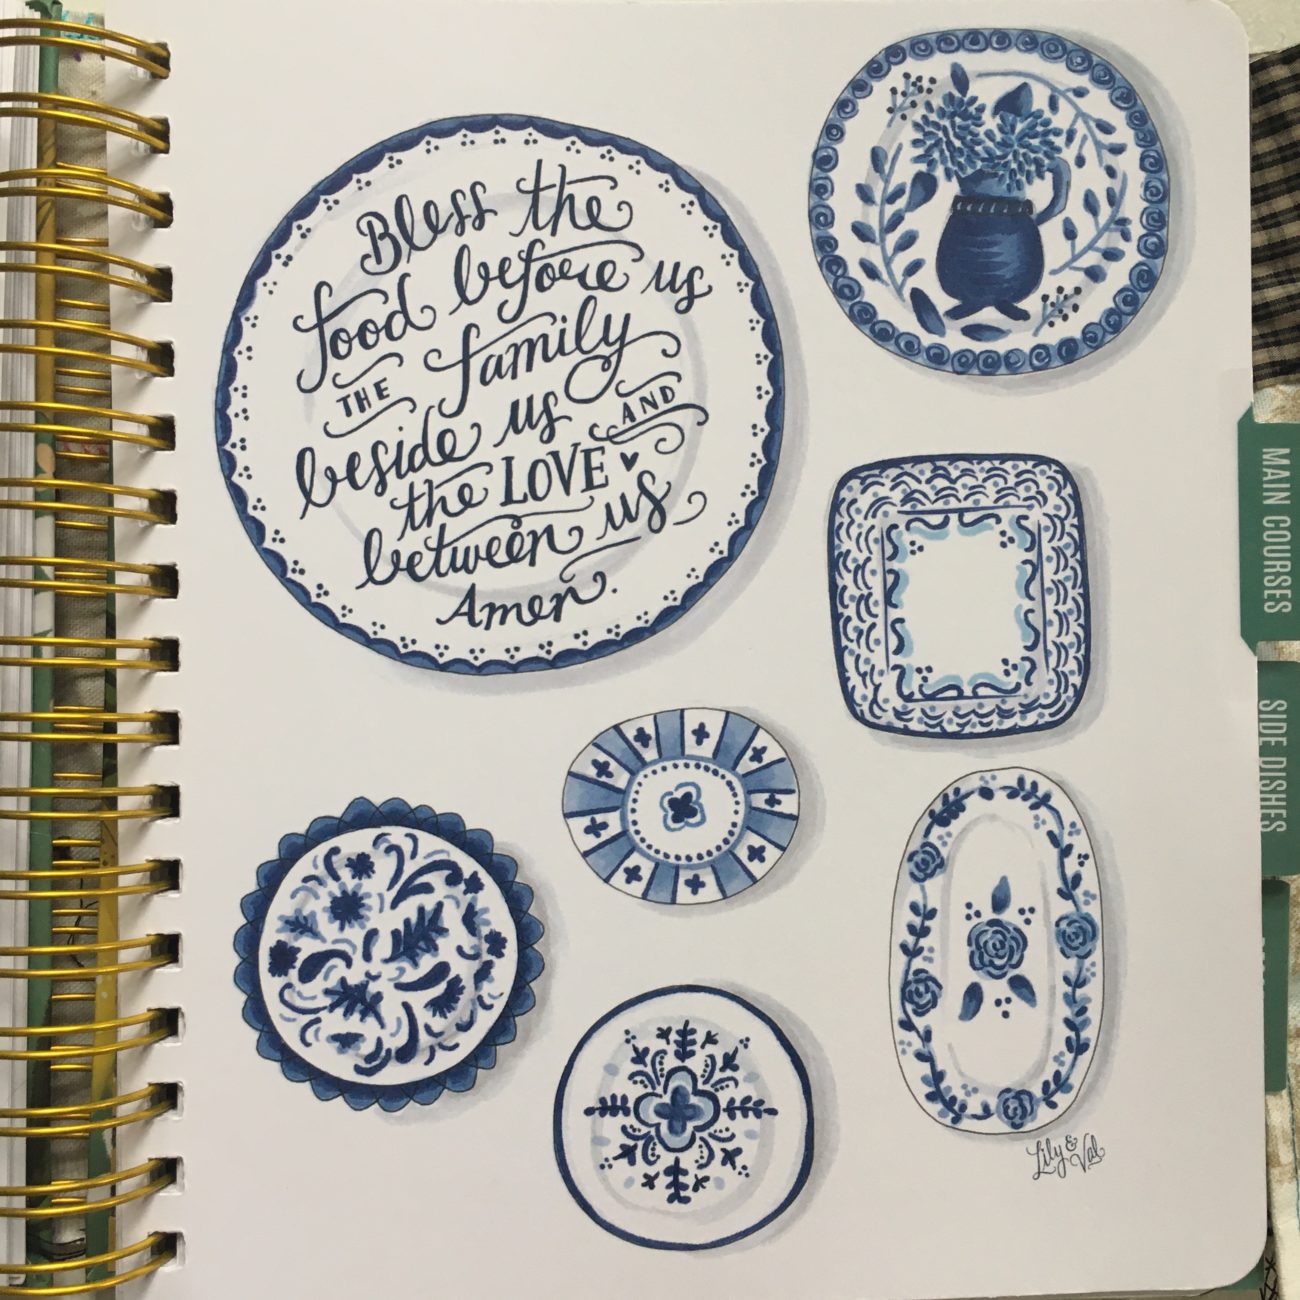 Bless the
food before us
THE family
beside us AND
the LOVE
between us
Amen.
MAIN COURSES
SIDE DISHES
Lily & Val